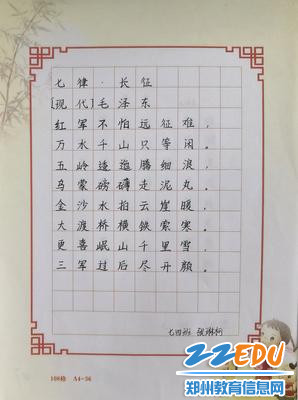 七律·长征
[现代]毛泽东
红军不怕远征难，
万水千山只等闲。
五岭逶迤腾细浪，
乌蒙磅礴走泥丸。
金沙水拍云崖暖，
大渡桥横铁索寒。
更喜岷山千里雪，
三军过后尽开颜。
七四班 张琳钧
108格 A4-36
22EDU
郑州教育信息网